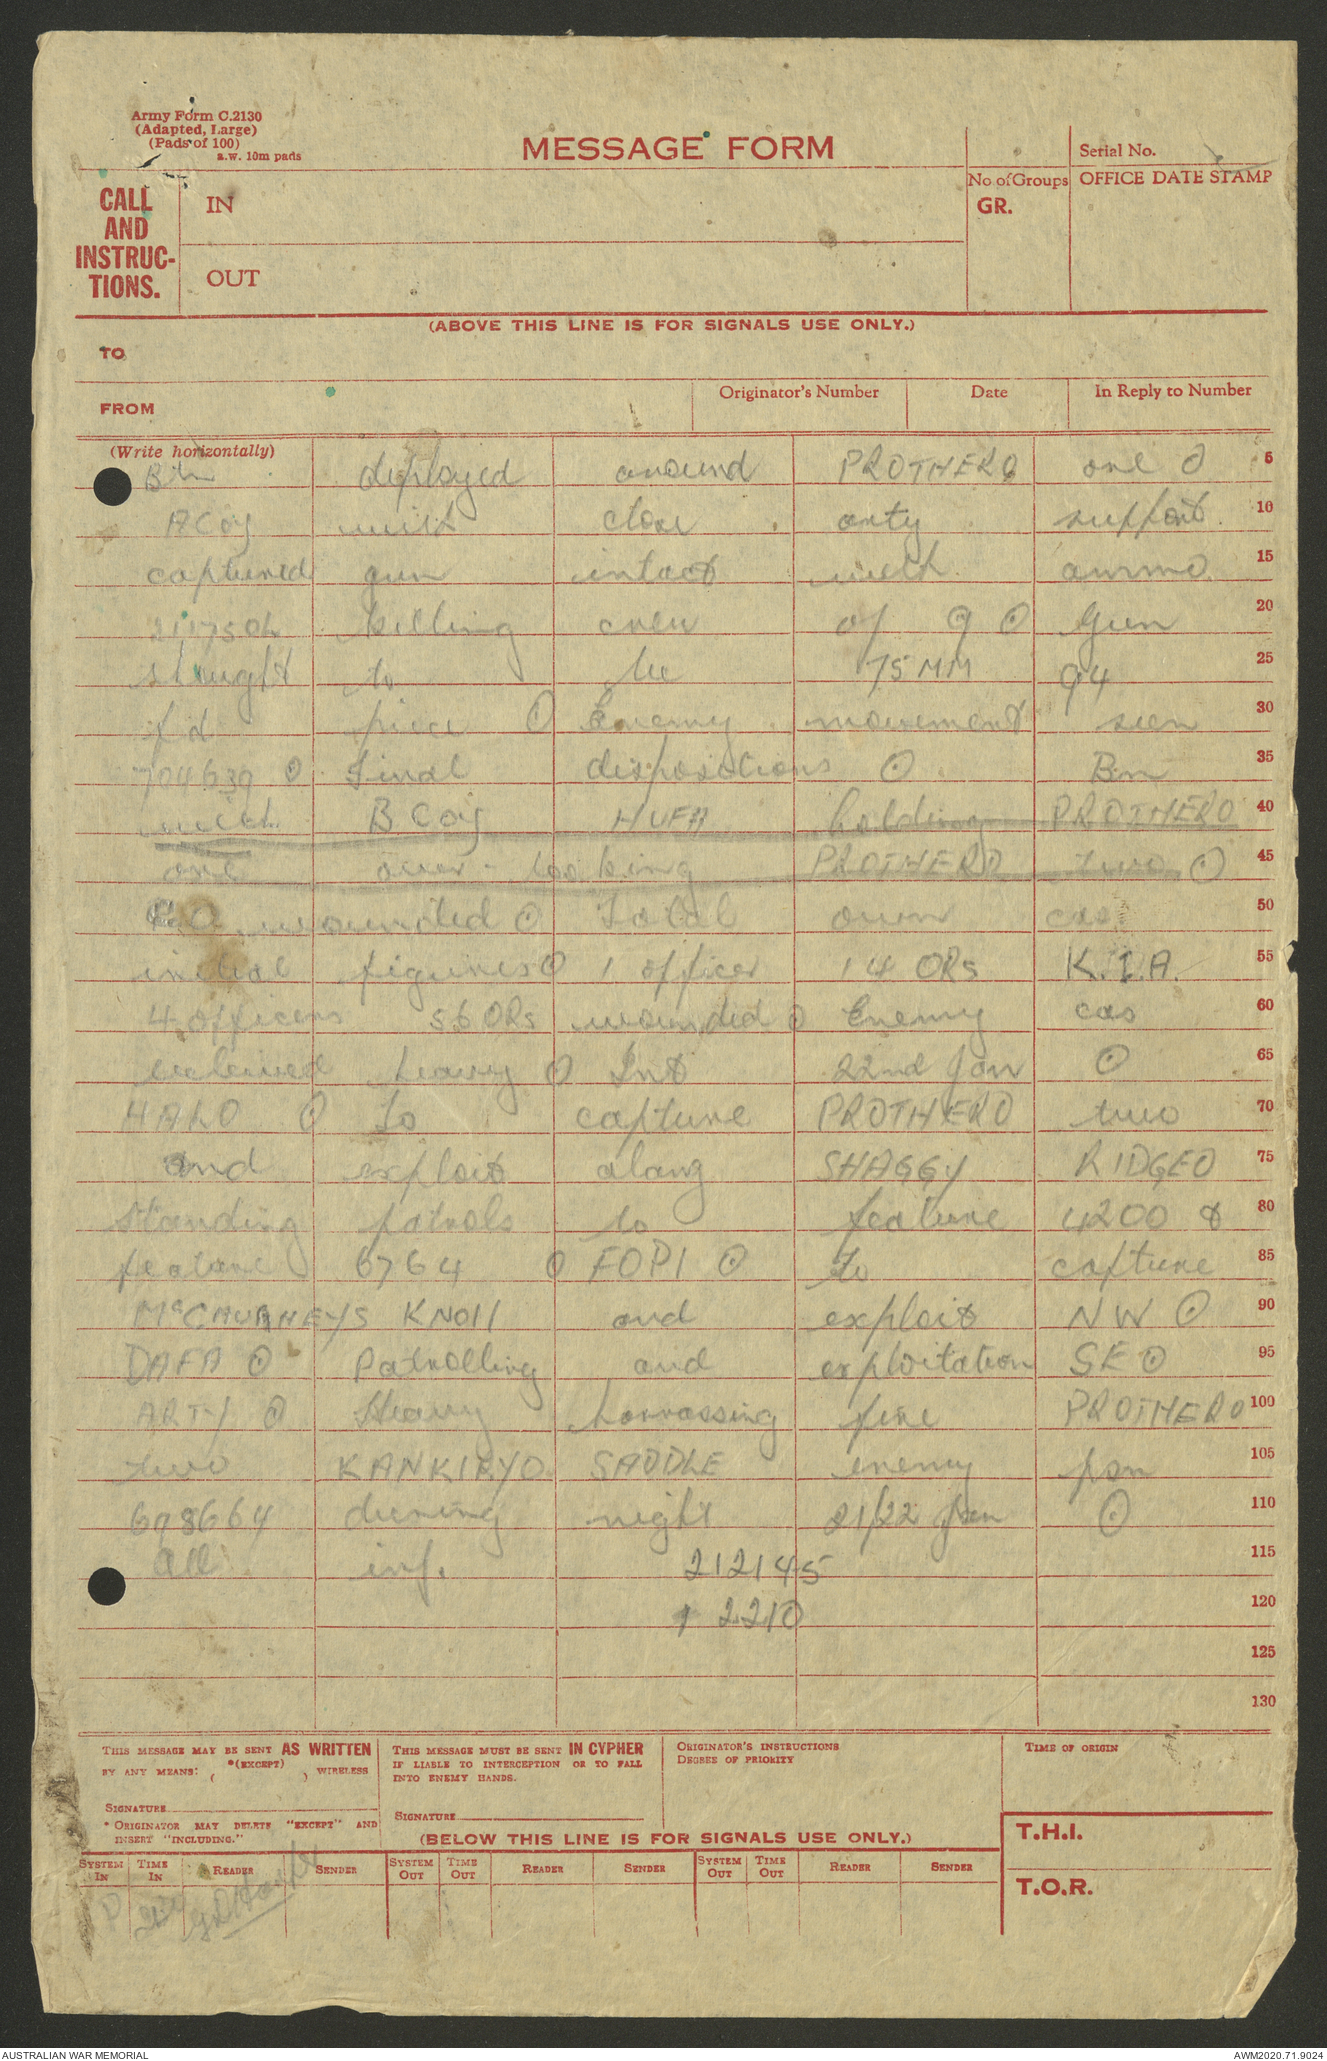 Army Form C.2130
(Adapted, Large)
(Pads of 100)
a.w. 10m pads
MESSAGE FORM
Serial No.
CALL AND INSTRUC-TIONS.
IN
No of Groups GR.
OFFICE DATE STAMP
OUT
(ABOVE THIS LINE IS FOR SIGNALS USE ONLY.)
TO
FROM
Originator's Number
Date
In Reply to Number
(Write horizontally)
Bn deployed around PROTHERO one ⊙ 5
A Coy with close arty support 10
captured gun intact with ammo 15
killing crew of 9 ⊙ Gun 20
thought to be 75MM 94 25
fd piece ⊙ Enemy movement seen 30
704639 ⊙ Final dispositions ⊙ Bn 35
with B Coy HUFA holding PROTHERO 40
one over-looking PROTHERO two ⊙ 45
wounded ⊙ Total own cas 50
initial figures ⊙ 1 officer 14 ORs K.I.A. 55
4 officers 56 ORs wounded ⊙ Enemy cas 60
believed heavy ⊙ Int 22nd Jan ⊙ 65
HALO ⊙ To capture PROTHERO two 70
and exploit along SHAGGY RIDGE ⊙ 75
standing patrols to feature 4200 & 80
feature 6764 ⊙ FOPI ⊙ To capture 85
McCAUGHEYS KNOll and exploit NW ⊙ 90
DAFA ⊙ Patrolling and exploitation SE ⊙ 95
ARTY ⊙ Heavy harrassing fire PROTHERO 100
two KANKIRYO SADDLE enemy posn 105
698664 during night 21/22 Jan ⊙ 110
All inf. 212145 115
2210 120
125
130
THIS MESSAGE MAY BE SENT AS WRITTEN
BY ANY MEANS: *(EXCEPT) ( ) WIRELESS
SIGNATURE
* ORIGINATOR MAY DELETE "EXCEPT" AND
INSERT "INCLUDING."
THIS MESSAGE MUST BE SENT IN CYPHER
IF LIABLE TO INTERCEPTION OR TO FALL
INTO ENEMY HANDS.
SIGNATURE
ORIGINATOR'S INSTRUCTIONS
DEGREE OF PRIORITY
TIME OF ORIGIN
(BELOW THIS LINE IS FOR SIGNALS USE ONLY.)
T.H.I.
SYSTEM IN TIME IN READER SENDER SYSTEM OUT TIME OUT READER SENDER SYSTEM OUT TIME OUT READER SENDER
T.O.R.
AUSTRALIAN WAR MEMORIAL
AWM2020.71.9024